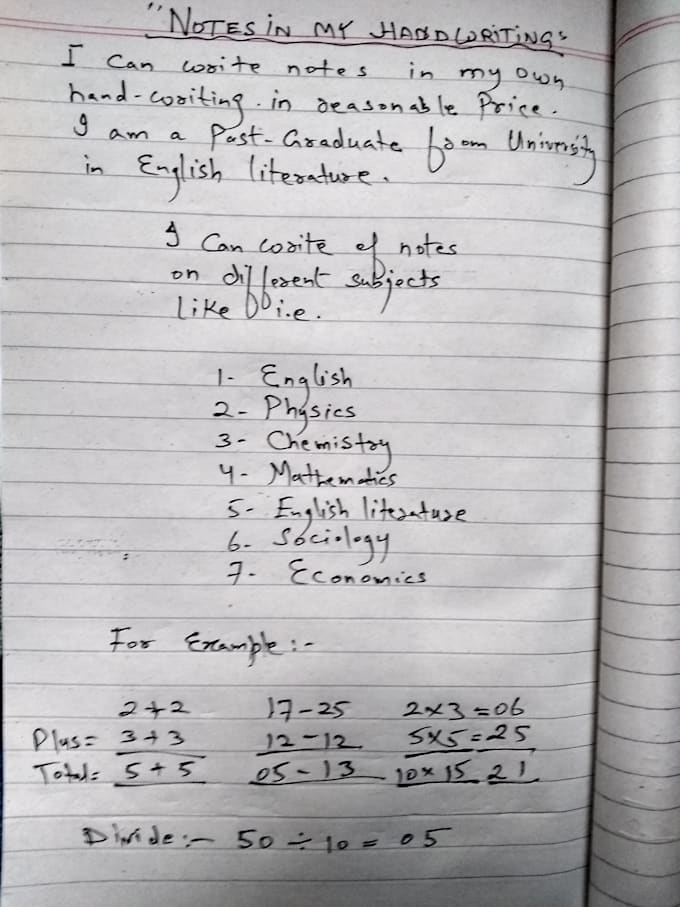 "NOTES IN MY HANDWRITINGS
I Can write notes in my own
hand-writing. in reasonable Price.
I am a Post-Graduate from University
in English literature.
I Can write of notes
on different subjects
like i.e.
1- English
2- Physics
3- Chemistry
4- Mathematics
5- English literature
6- Sociology
7- Economics
For Example:-
2+2 17-25 2x3=06
Plus= 3+3 12-12 5x5=25
Total= 5+5 05-13 10x15 21
Divide:- 50÷10=05